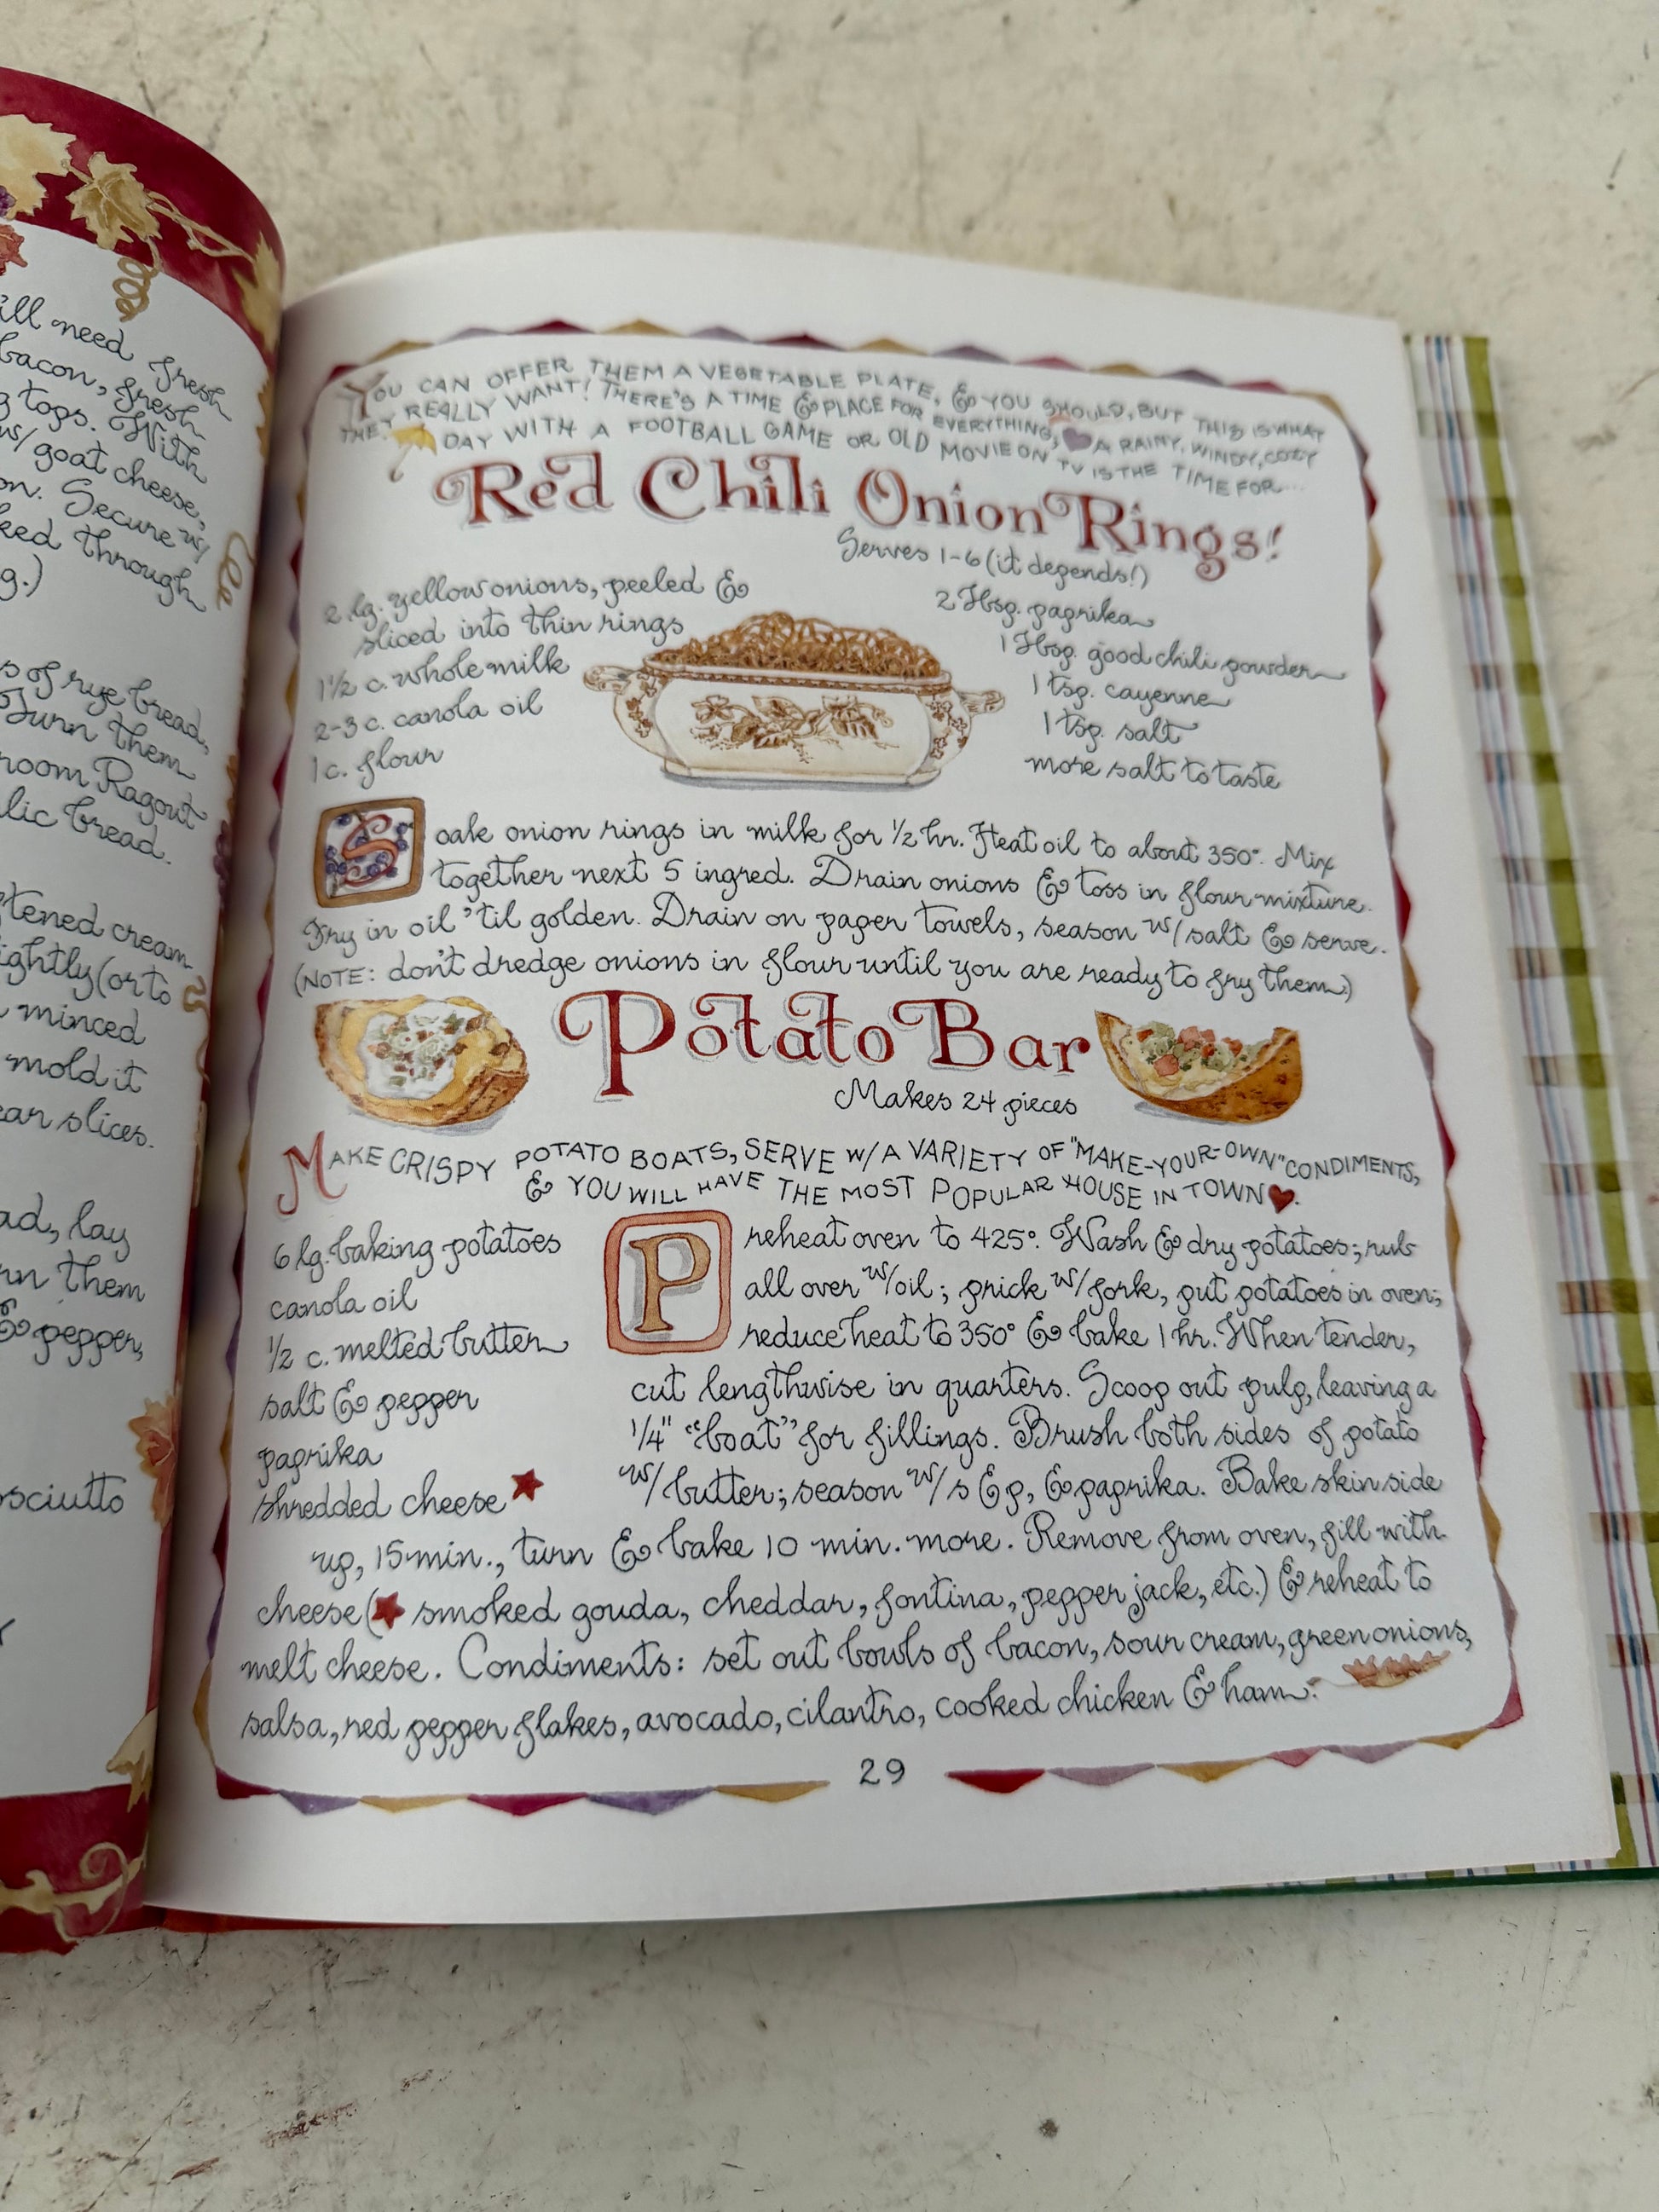 ill need fresh
bacon, fresh
g tops. With
w/ goat cheese,
on. Secure w/
ked through
g.)
s of rye bread,
Turn them
room Ragout
lic bread.
tened cream
ightly (or to
minced
mold it
ear slices.
ad, lay
rn them
& pepper,
osciutto
YOU CAN OFFER THEM A VEGETABLE PLATE, & YOU SHOULD, BUT THIS IS WHAT
THEY REALLY WANT! THERE'S A TIME & PLACE FOR EVERYTHING, A RAINY, WINDY, COZY
DAY WITH A FOOTBALL GAME OR OLD MOVIE ON TV IS THE TIME FOR...
Red Chili Onion Rings!
Serves 1-6 (it depends!)
2 lg. yellow onions, peeled &
sliced into thin rings
1 1/2 c. whole milk
2-3 c. canola oil
1 c. flour
2 Tbsp. paprika
1 Tbsp. good chili powder
1 tsp. cayenne
1 tsp. salt
more salt to taste
Soak onion rings in milk for 1/2 hr. Heat oil to about 350°. Mix
together next 5 ingred. Drain onions & toss in flour mixture.
Fry in oil 'til golden. Drain on paper towels, season w/ salt & serve.
(NOTE: don't dredge onions in flour until you are ready to fry them.)
Potato Bar
Makes 24 pieces
MAKE CRISPY POTATO BOATS, SERVE W/ A VARIETY OF "MAKE-YOUR-OWN" CONDIMENTS,
& YOU WILL HAVE THE MOST POPULAR HOUSE IN TOWN.
6 lg. baking potatoes
canola oil
1/2 c. melted butter
salt & pepper
paprika
shredded cheese ★
Preheat oven to 425°. Wash & dry potatoes; rub
all over w/ oil; prick w/ fork, put potatoes in oven;
reduce heat to 350° & bake 1 hr. When tender,
cut lengthwise in quarters. Scoop out pulp, leaving a
1/4" "boat" for fillings. Brush both sides of potato
w/ butter; season w/ s & p, & paprika. Bake skin side
up, 15 min., turn & bake 10 min. more. Remove from oven, fill with
cheese (★ smoked gouda, cheddar, fontina, pepper jack, etc.) & reheat to
melt cheese. Condiments: set out bowls of bacon, sour cream, green onions,
salsa, red pepper flakes, avocado, cilantro, cooked chicken & ham.
29